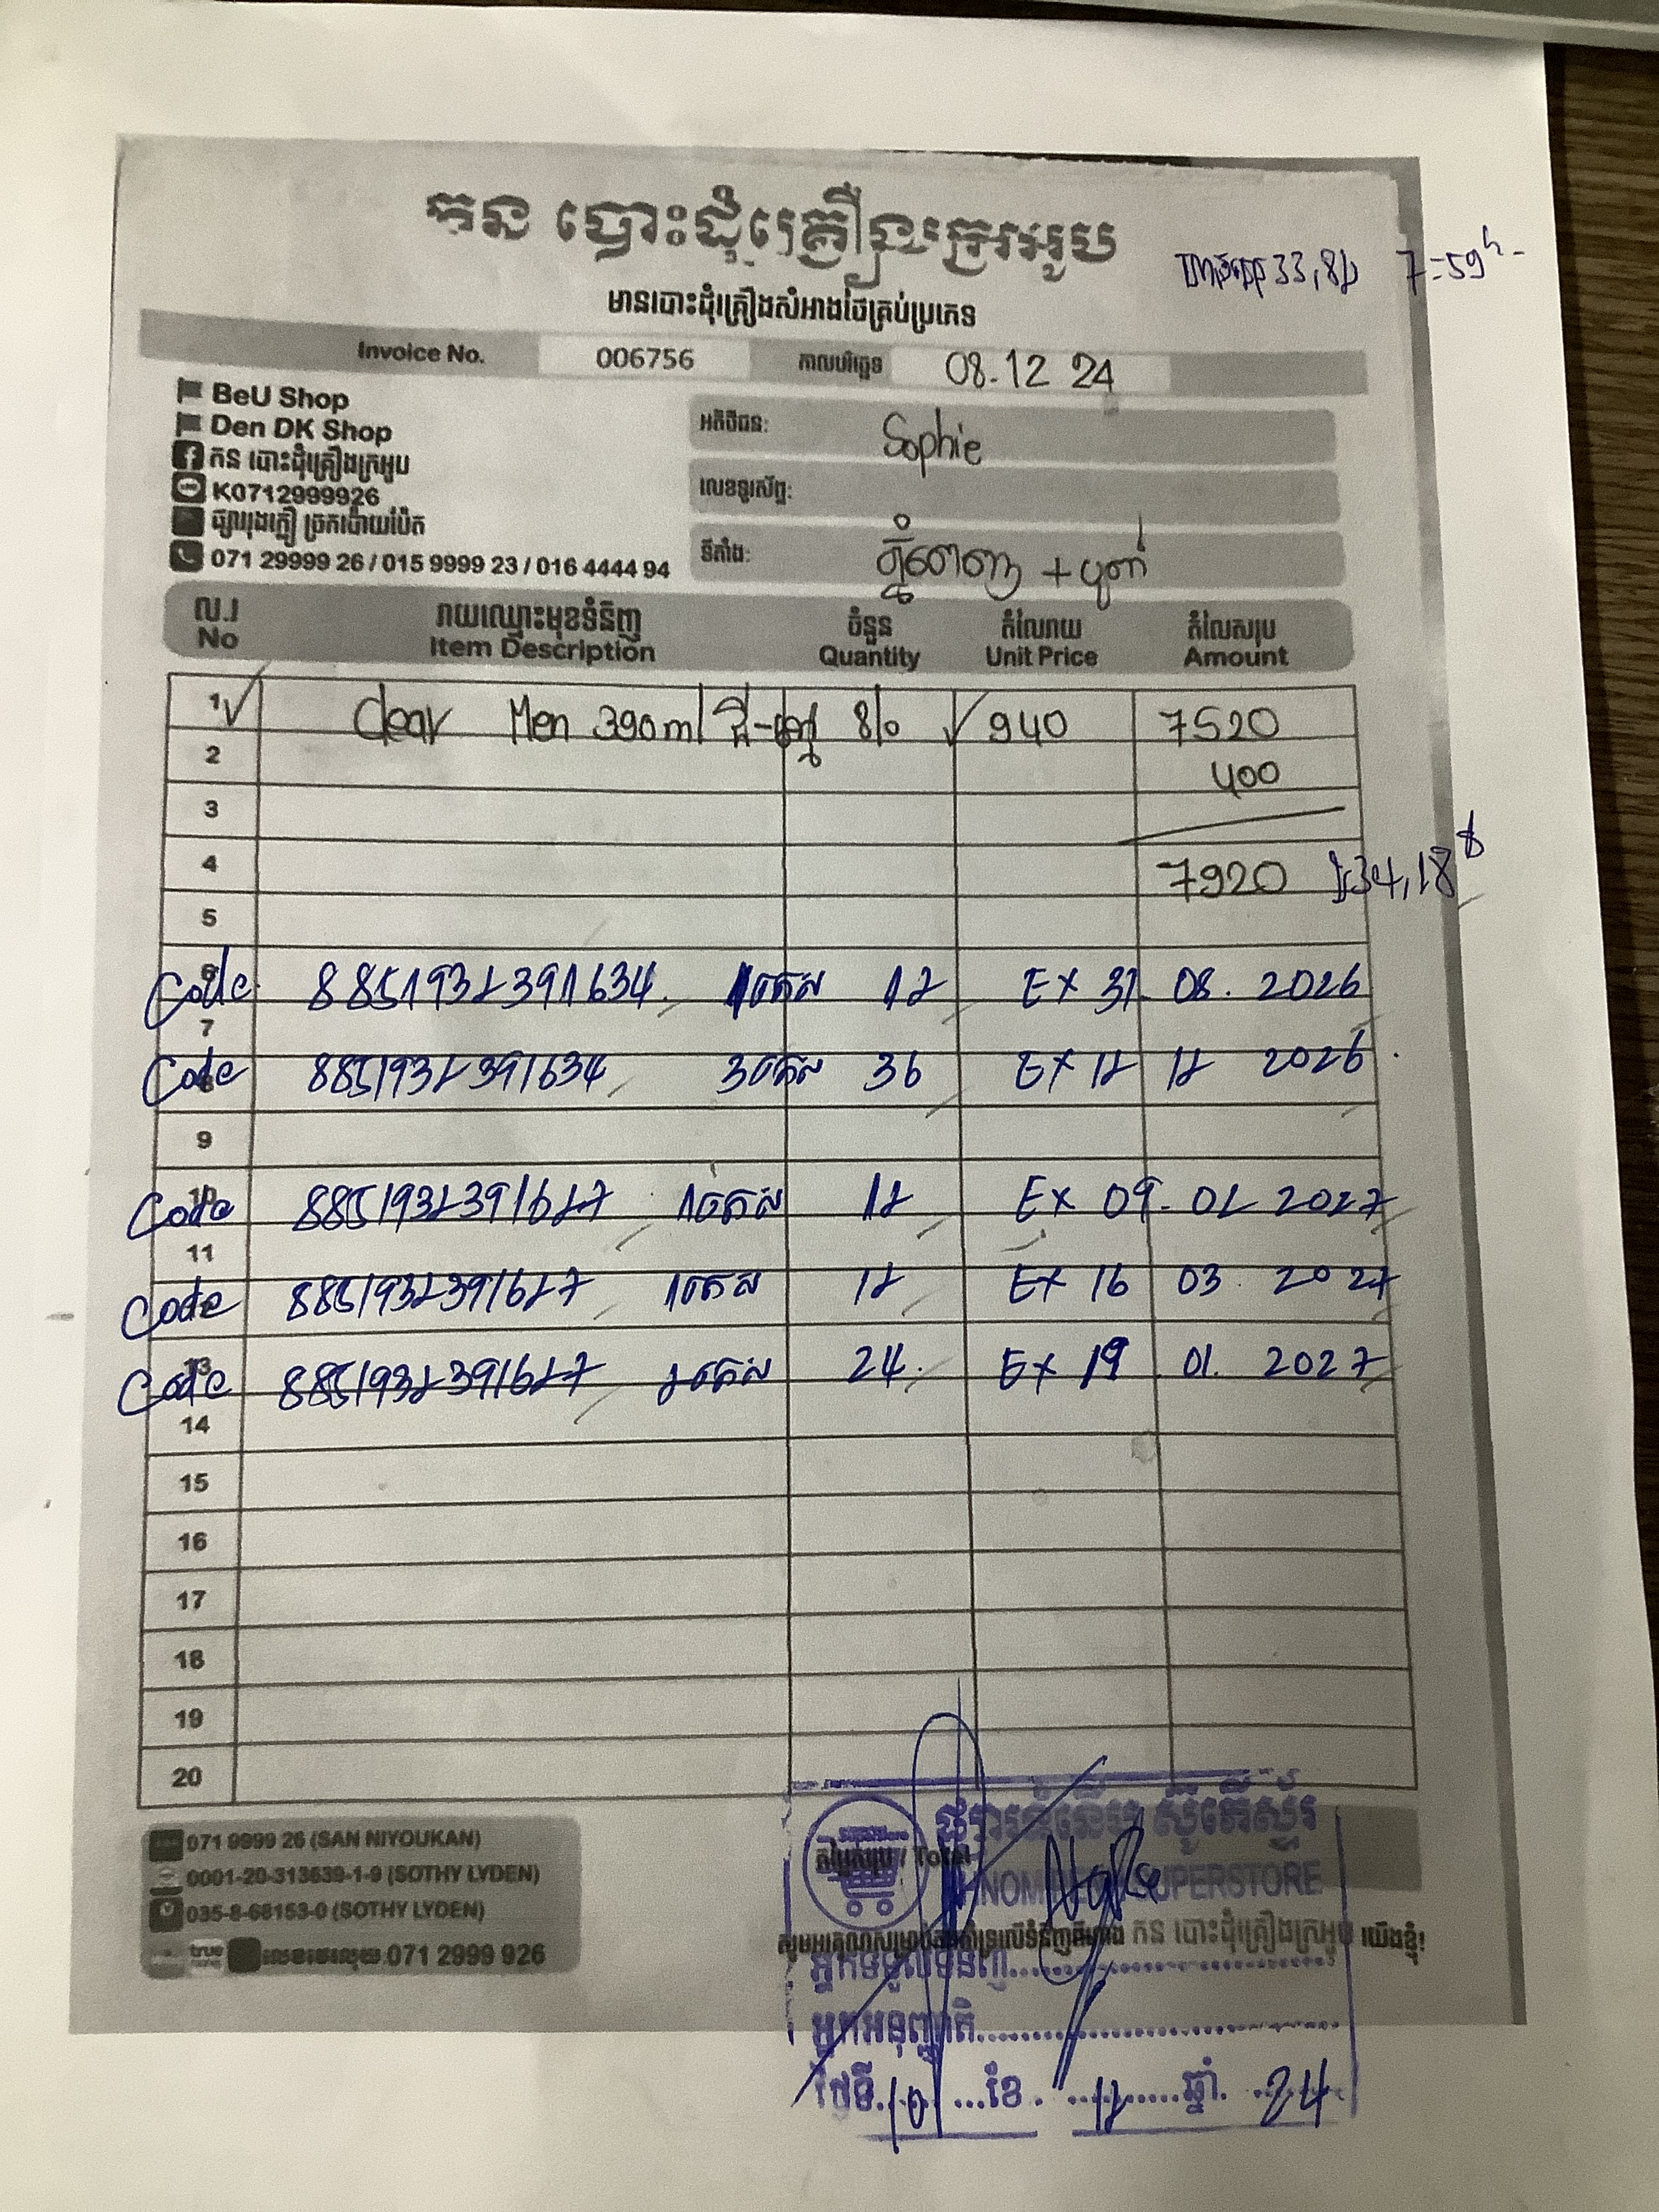 កន បោះដុំគ្រឿងក្រអូប
33,8 7=59h
មានបោះដុំគ្រឿងសំអាងថៃគ្រប់ប្រភេទ
Invoice No. 006756 កាលបរិច្ឆេទ 08.12 24
BeU Shop
Den DK Shop
កន បោះដុំគ្រឿងក្រអូប
K0712999926
ផ្សាររុងក្លឿ ច្រកប៉ោយប៉ែត
071 29999 26 / 015 9999 23 / 016 4444 94
អតិថិជន: Sophie
លេខទូរស័ព្ទ:
ទីតាំង: ភ្នំពេញ +
ល.រ រាយឈ្មោះមុខទំនិញ ចំនួន តំលៃរាយ តំលៃសរុប
No Item Description Quantity Unit Price Amount
1 Clear Men 390ml 8 940 7520
2 400
3
4 7920 34,18$
5
6 Code 8851932391634 1កេស 12 EX 31. 08. 2026
7
8 Code 8851932391634 3កេស 36 EX 12 12 2026
9
10 Code 8851932391627 1កេស 12 EX 09. 02 2027
11
Code 8851932391627 1កេស 12 EX 16 03 2027
13 Code 8851932391627 2កេស 24 EX 19 01. 2027
14
15
16
17
18
19
20
071 9999 26 (SAN NIYOUKAN)
0001-20-313639-1-9 (SOTHY LYDEN)
035-8-68153-0 (SOTHY LYDEN)
071 2999 926
តំលៃសរុប / Total
SUPERSTORE
សូមអរគុណសម្រាប់ការគាំទ្រលើទំនិញពីហាង កន បោះដុំគ្រឿងក្រអូប យើងខ្ញុំ!
អ្នកទទួលទំនិញ
អ្នកអនុញ្ញាតិ
ថ្ងៃទី 10 ខែ 12 ឆ្នាំ 24